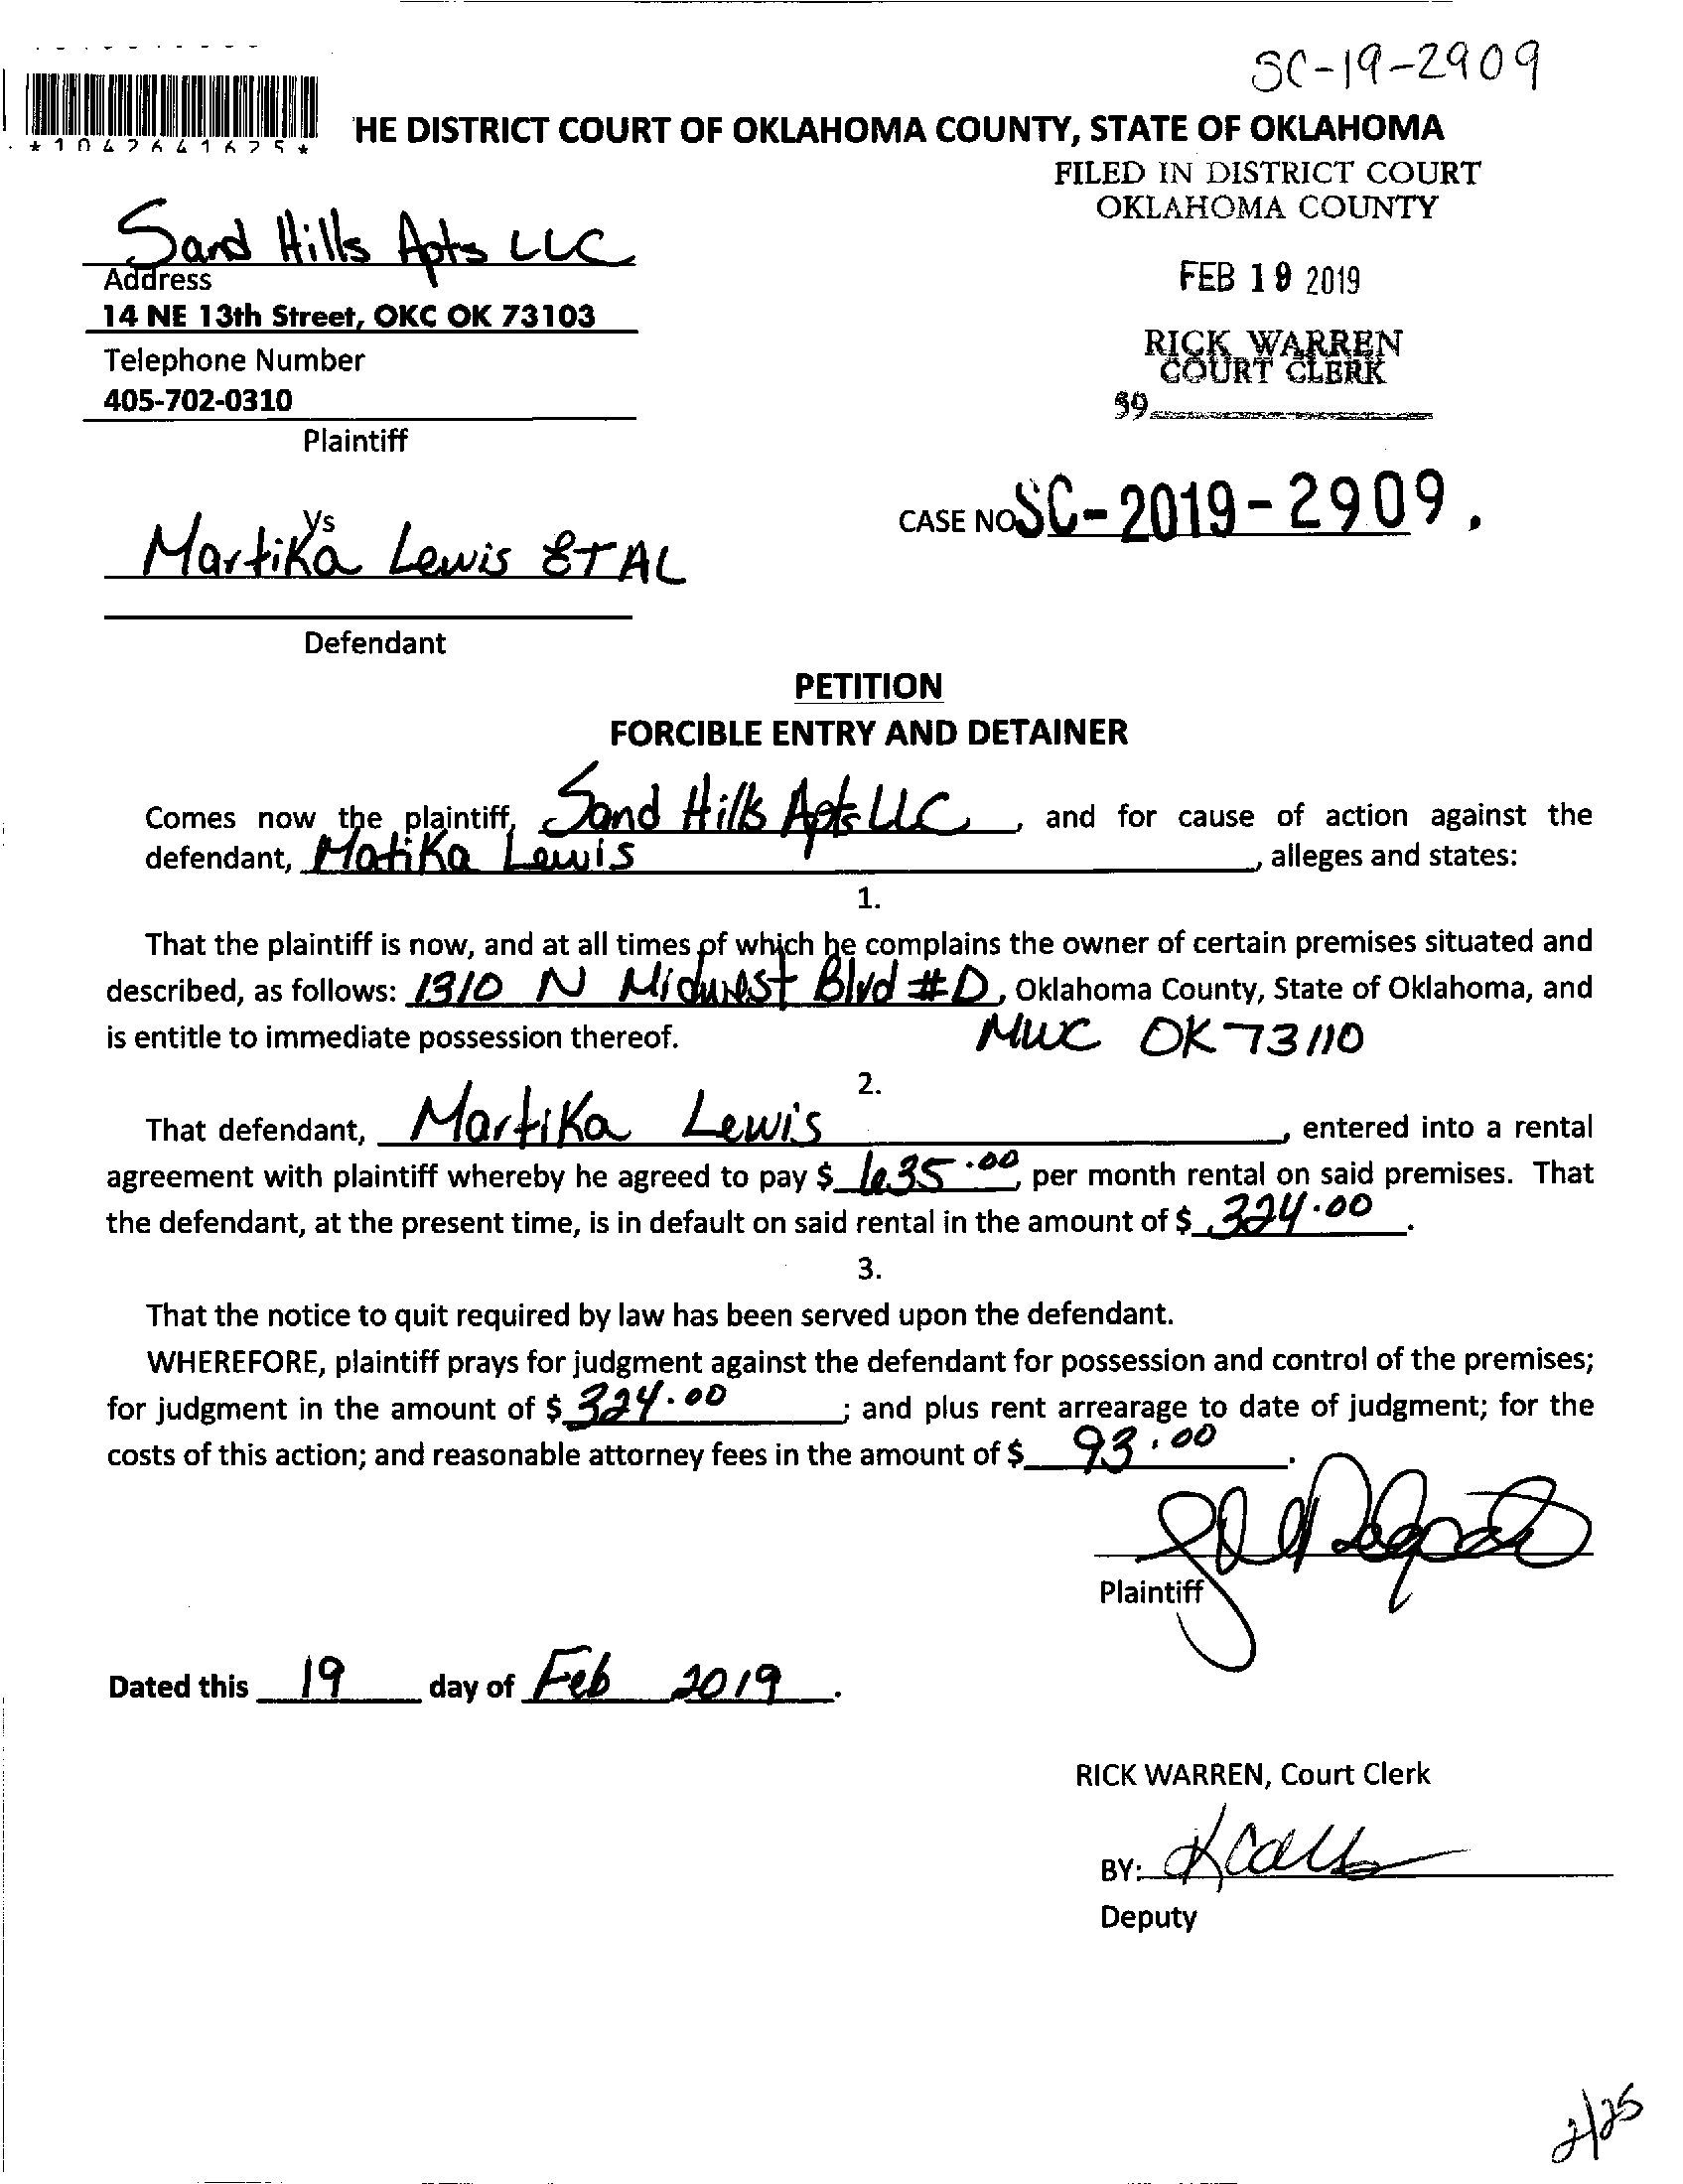 SC-19-2909
*1042641625*
HE DISTRICT COURT OF OKLAHOMA COUNTY, STATE OF OKLAHOMA
FILED IN DISTRICT COURT
OKLAHOMA COUNTY
Sand Hills Apts LLC
Address
14 NE 13th Street, OKC OK 73103
FEB 19 2019
Telephone Number
RICK WARREN
COURT CLERK
405-702-0310
39
Plaintiff
CASE NO SC-2019-2909.
Vs
Martika Lewis ETAL
Defendant
PETITION
FORCIBLE ENTRY AND DETAINER
Comes now the plaintiff, Sand Hills Apts LLC, and for cause of action against the
defendant, Matika Lewis, alleges and states:
1.
That the plaintiff is now, and at all times of which he complains the owner of certain premises situated and
described, as follows: 1310 N Midwest Blvd #D, Oklahoma County, State of Oklahoma, and
is entitle to immediate possession thereof. MWC OK 73110
2.
That defendant, Martika Lewis, entered into a rental
agreement with plaintiff whereby he agreed to pay $ 635.00, per month rental on said premises. That
the defendant, at the present time, is in default on said rental in the amount of $ 324.00.
3.
That the notice to quit required by law has been served upon the defendant.
WHEREFORE, plaintiff prays for judgment against the defendant for possession and control of the premises;
for judgment in the amount of $ 324.00; and plus rent arrearage to date of judgment; for the
costs of this action; and reasonable attorney fees in the amount of $ 93.00.
Plaintiff
Dated this 19 day of Feb 2019.
RICK WARREN, Court Clerk
BY:
Deputy
2/25